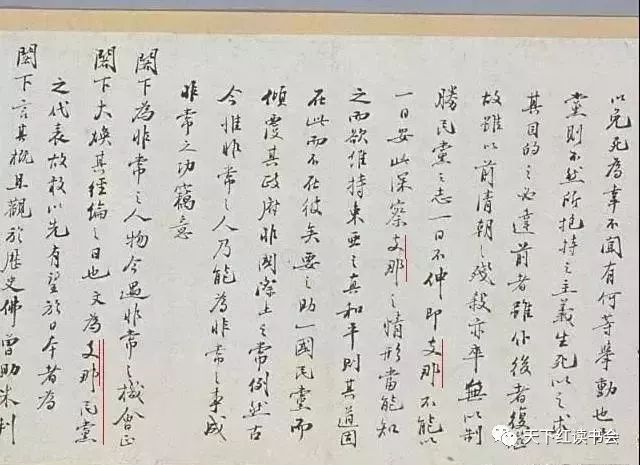 以免死為幸不聞有何等舉動也
黨則不然所抱持之主義生死以之求
其目的之必達前者雖仆後者復繼
故雖以前清朝之殘殺亦卒無以制
勝民黨之志一日不伸即支那不能以
一日安此深察支那之情形當能知
之而欲維持東亞之真和平則其道固
在此而不在彼矣要之助一國民黨而
傾覆其政府非國際上之常例然古
今惟非常之人乃能為非常之事成
非常之功竊意
閣下為非常之人物今遇非常之機會正
閣下大煥其經綸之日也文為支那民黨
之代表故敢以先有望於日本者為
閣下言其概且觀於歷史佛曾助米利
天下红读书会